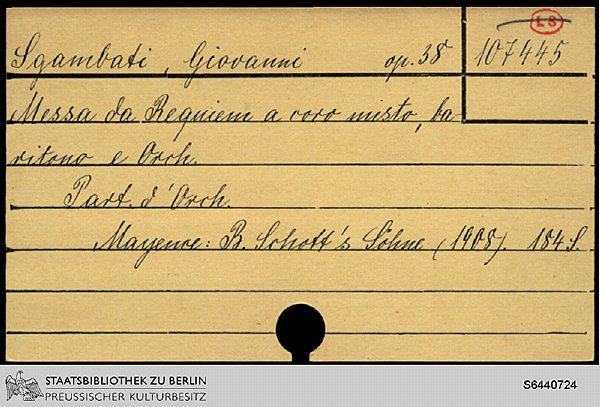 LS
Sgambati, Giovanni op. 38 107445
Messa da Requiem a coro misto, ba-
ritono e Orch.
Part. d'Orch.
Mayence: B. Schott's Söhne (1908). 184 S.
STAATSBIBLIOTHEK ZU BERLIN
PREUSSISCHER KULTURBESITZ
S6440724